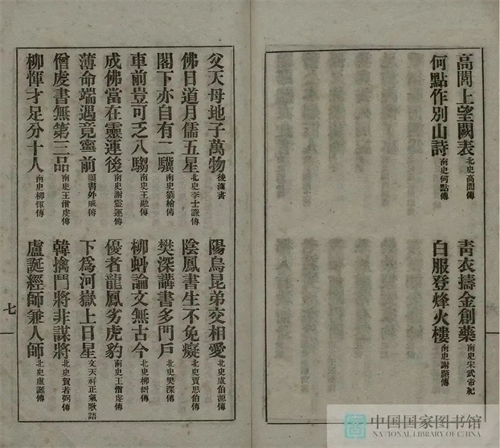 高閭上望闕表 北史高閭傳 青衣擣金創藥 南史宋武帝紀
何點作別山詩 南史何點傳 白服登烽火樓 南史謝傳
父天母地子萬物 後漢書 陽烏昆弟交相愛 北史盧伯源傳
佛日道月儒五星 北史李士謙傳 陰鳳書生不免癡 北史賈思伯傳
閣下亦自有二驥 南史劉繪傳 樊深講書多門戶 北史樊深傳
車前豈可乏八騶 南史王融傳 柳蚪論文無古今 北史柳蚪傳
成佛當在靈運後 南史謝靈運傳 優者龍鳳劣虎豹 南史王僧虔傳
薄命端遇竟寧前 漢書外戚傳 下為河嶽上日星 文天祥正氣歌語
僧虔書無第三品 南史王僧虔傳 韓擒鬥將非謀將 北史賀若弼傳
柳惲才足分十人 南史柳惲傳 盧誕經師兼人師 北史盧誕傳
七
中国国家图书馆
NATIONAL LIBRARY OF CHINA